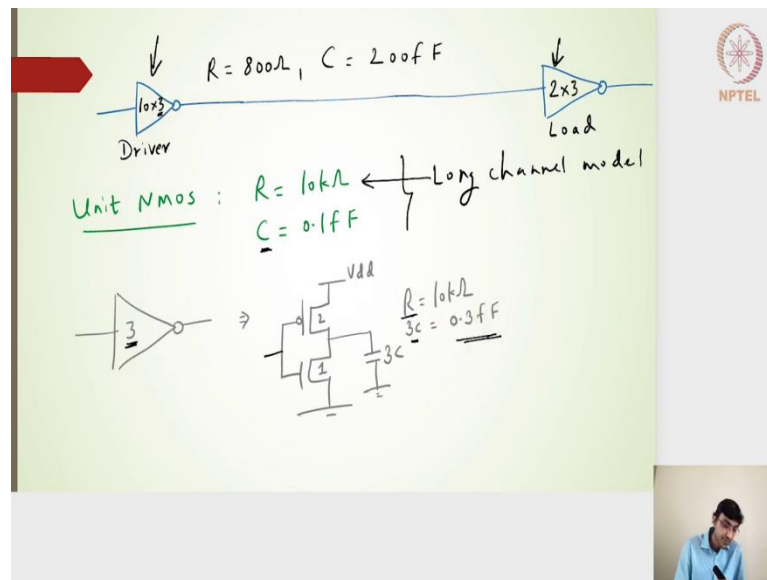 R = 800Ω, C = 200fF
10×3
2×3
Driver
Load
NPTEL
Unit NMOS : R = 10kΩ ← Long channel model
C = 0.1fF
3 ⇒
Vdd
2
1
3C
R = 10kΩ
3C = 0.3fF